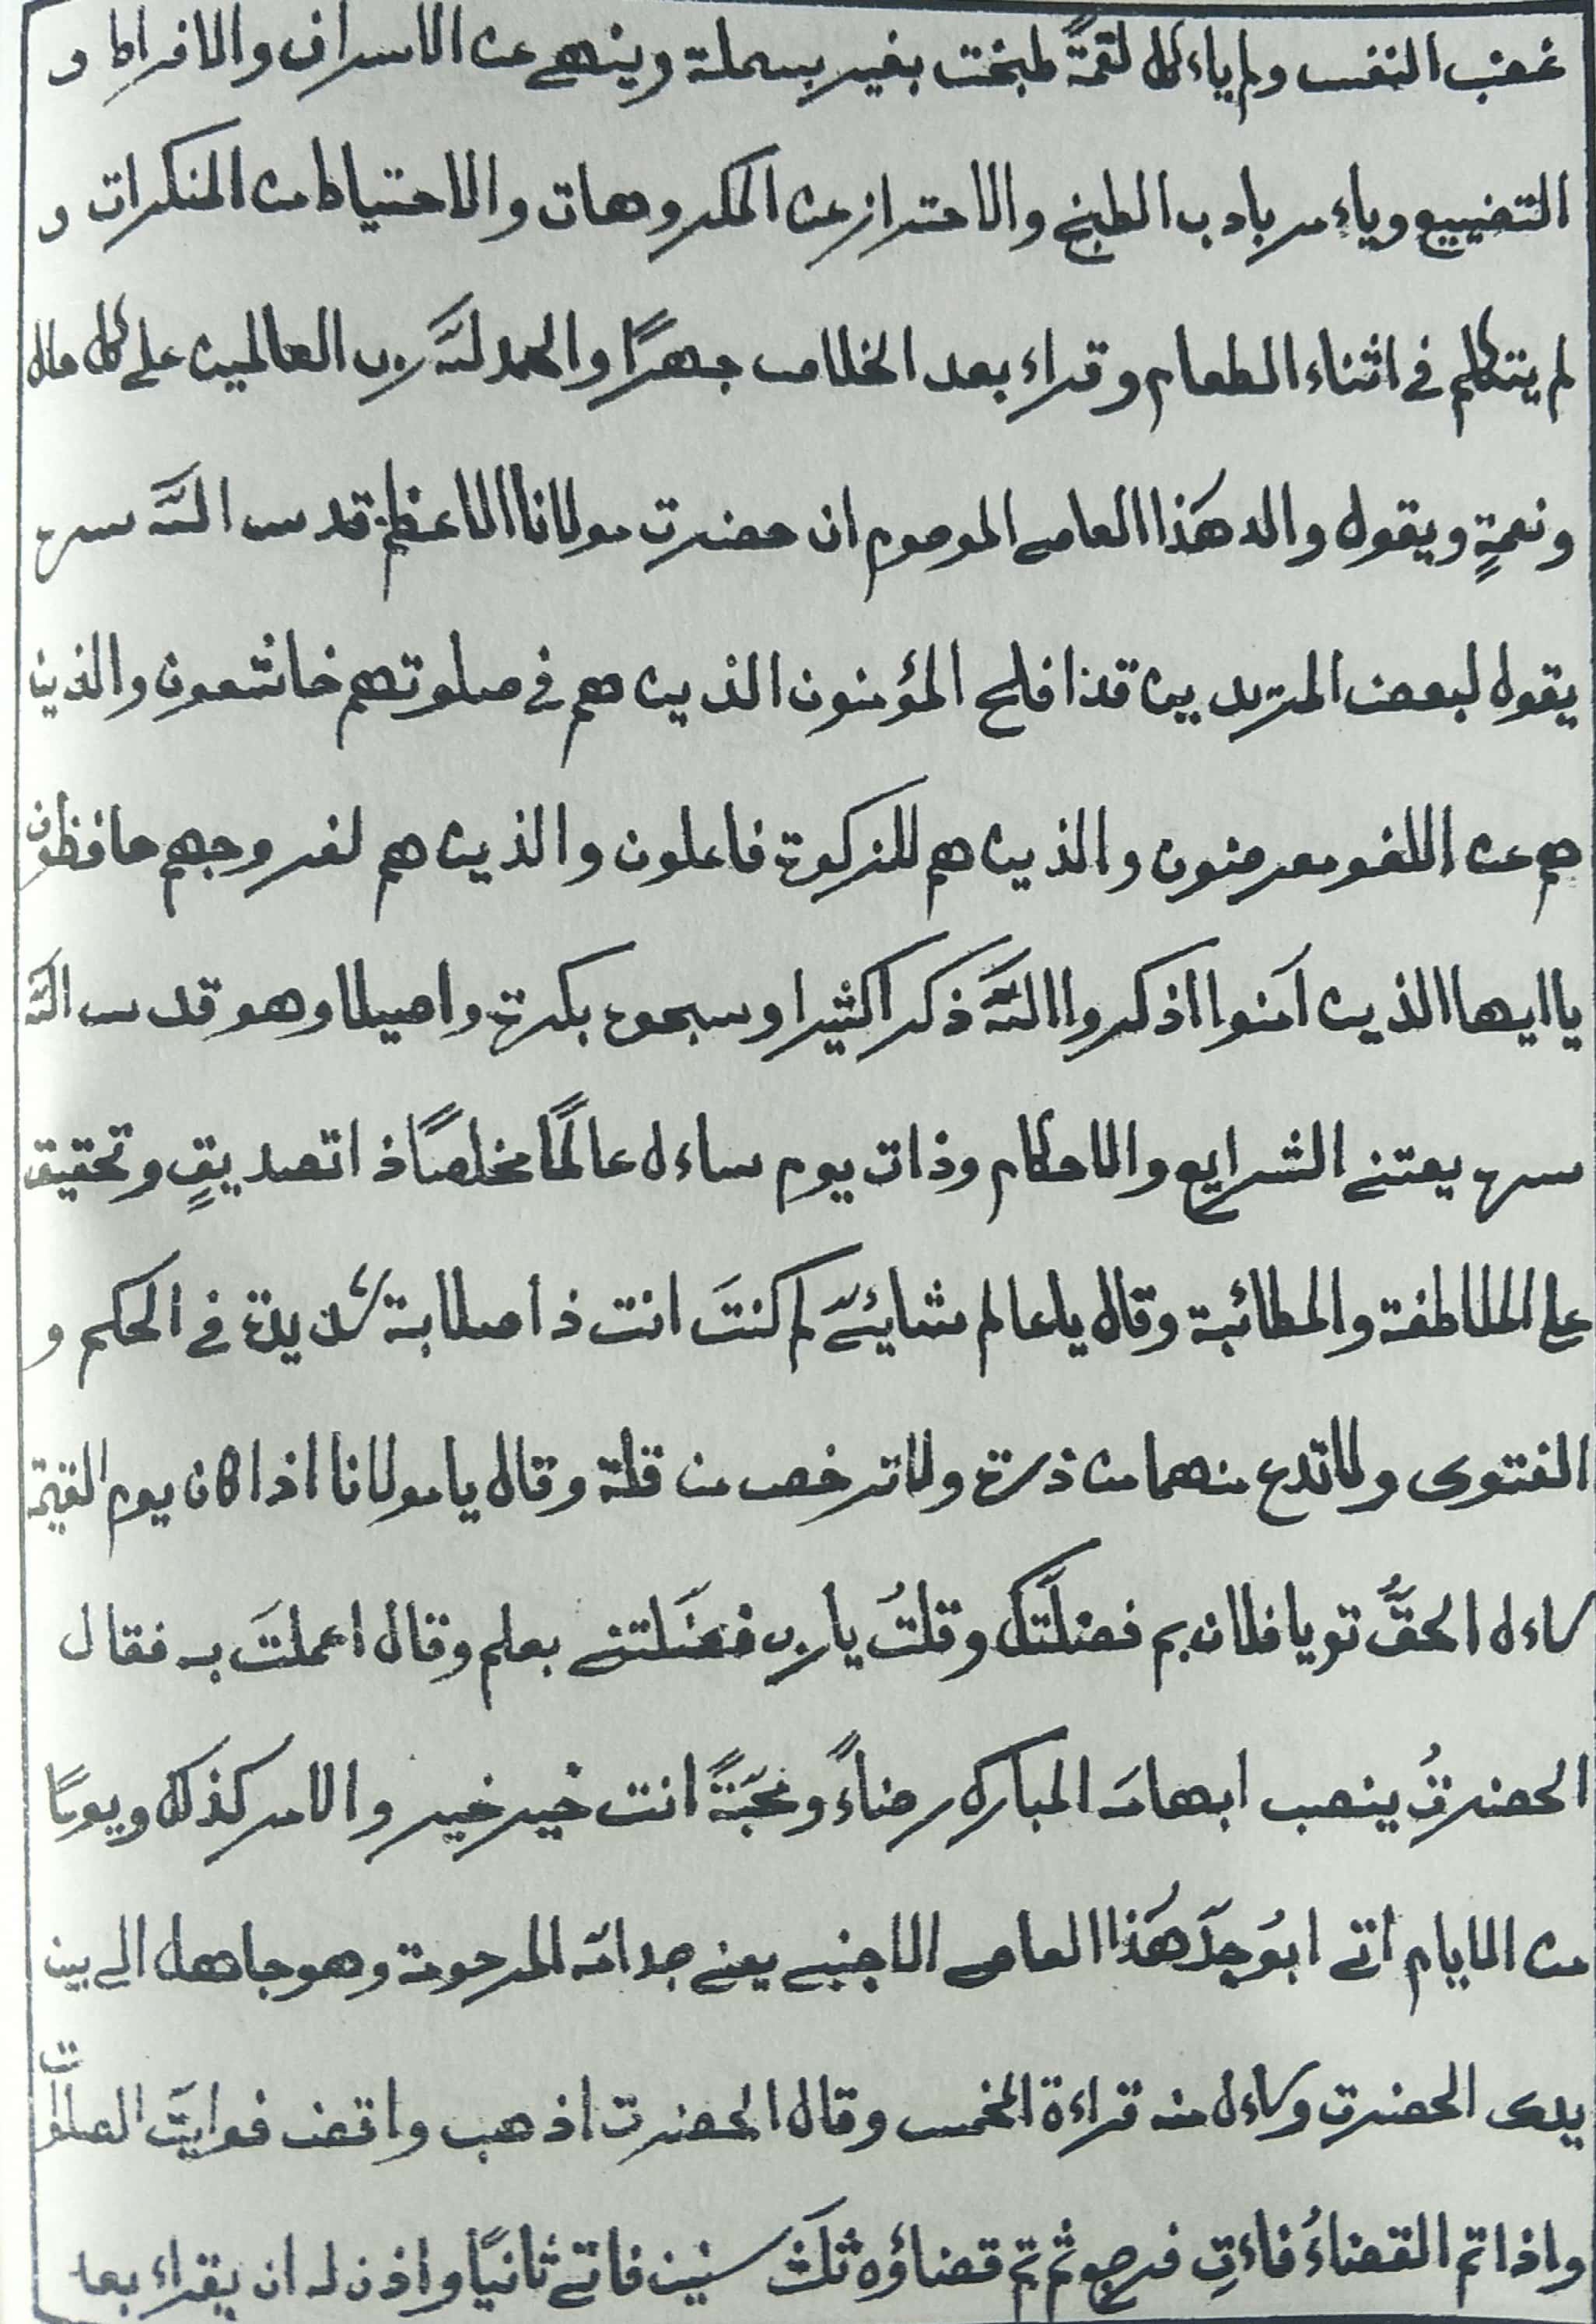 غضب النفس ولم ياءكل لقمةً طبخت بغير بسملة وينهى عن الاسراف والافراط و
التضييع وياءمر بادب الطبخ والاحتراز عن المكروهات والاحتياط من المنكرات و
لم يتكلم في اثناء الطعام وقراء بعد الخلاص جهرًا والحمد لله رب العالمين على كل حال
ونعمةٍ ويقول والد هذا العاصى الموصوم ان حضرت مولانا الاعظم قدس الله سره
يقول لبعض المريدين قد افلح المؤمنون الذين هم في صلوتهم خاشعون والذين
هم عن اللغو معرضون والذين هم للزكوة فاعلون والذين هم لفروجهم حافظون
يا ايها الذين آمنوا اذكروا الله ذكرا كثيرا وسبحوه بكرة واصيلا وهو قدس الله
سره يعتنى الشرايع والاحكام وذات يوم ساءل عالمًا مخلصًا ذا تصديقٍ وتحقيق
على الملاطفة والمطائبة وقال يا عالم لم كنتَ انت ذا صلابة شديدة في الحكم و
الفتوى ولا تدع منهما من ذرة ولا ترخص من قلة وقال يا مولانا اذا كان يوم القيمة
ساءل الحقُّ تو يا فلان بم فضلتك وقلتُ يا رب فضلتنى بعلم وقال اعملتَ به فقال
الحضرتُ ينصب ابهامه المبارك رضاءً ومحبةً انت خير خير والامر كذلك ويومًا
من الايام اتى ابو جدّ هذا العاصى الاجنبى يعنى جد امه المرحومة وهو جاهل الى بين
يدى الحضرت وساءل منه قراءة الخمس وقال الحضرت اذهب واقض فوايت الصلوات
واذا تم القضاءُ فاءتِ فرجع ثم تم قضاؤه ثلث سنين فاتى ثانيًا واذن له ان يقراء بعد